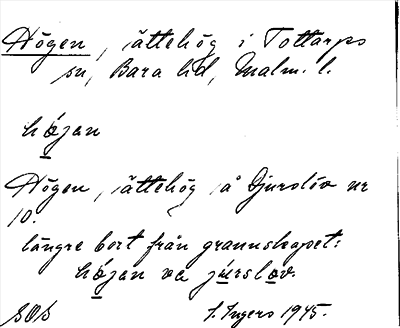 Högen, ättehög i Tottarps
sn, Bara hd, Malm. l.
hǫ́jan
Högen, ättehög å Djurslöv nr
10.
längre bort från grannskapet:
hǫ́jan va júrslǫv.
SOS I. Ingers 1945.